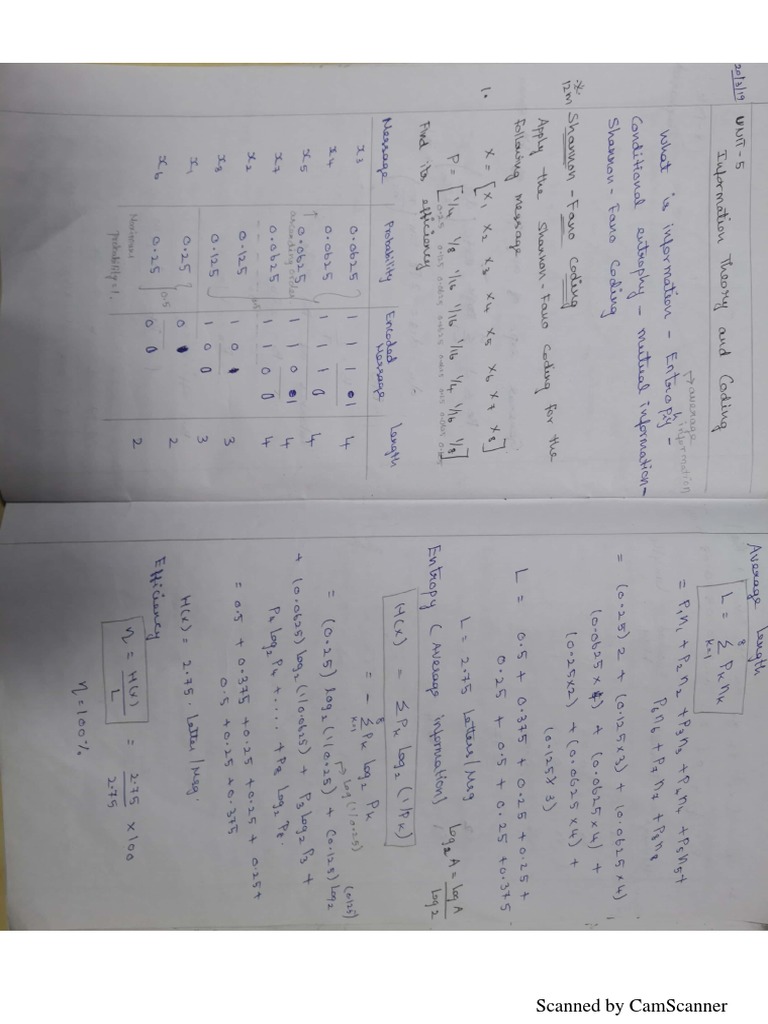 20/3/19
UNIT-5
Information Theory and Coding
average information
What is information - Entrophy -
Conditional entrophy - mutual information -
Shannon - Fano Coding
12m Shannon - Fano Coding
Apply the Shannon - Fano Coding for the
following message
1.
X = [x1 x2 x3 x4 x5 x6 x7 x8]
P = [1/4 1/8 1/16 1/16 1/16 1/4 1/16 1/8]
Find its efficiency
Message Probability Encoded Message Length
x3 0.0625 1 1 1 1 4
x4 0.0625 1 1 1 0 4
x5 0.0625 1 1 0 1 4
ascending order
x7 0.0625 1 1 0 0 4
x2 0.125 1 0 1 3
x8 0.125 1 0 0 3
x1 0.25 0 1 2
x6 0.25 0 0 2
0.5
probability
Average Length
L = 8 Σ k=1 Pk nk
= P1n1 + P2n2 + P3n3 + P4n4 + P5n5 +
P6n6 + P7n7 + P8n8
= (0.25) 2 + (0.125×3) + (0.0625×4)
(0.0625×4) + (0.0625×4) +
(0.25×2) + (0.0625×4) +
(0.125×3)
L = 0.5 + 0.375 + 0.25 + 0.25 +
0.25 + 0.5 + 0.25 + 0.375
L = 2.75 Letters/Msg
log2 A = log A / log 2
Entropy (Average information)
H(x) = Σ Pk log2 (1/Pk)
= - 8 Σ k=1 Pk log2 Pk
→ log (1/0.25)
= (0.25) log2 (1/0.25) + (0.125) log2 (0.125)
+ (0.0625) log2 (1/0.0625) + P3 log2 P3 +
P4 log2 P4 + ..... + P8 log2 P8.
= 0.5 + 0.375 + 0.25 + 0.25 + 0.25 +
0.5 + 0.25 + 0.375
H(x) = 2.75 Letter/Msg.
Efficiency
η = H(x)/L = 2.75/2.75 × 100
η = 100%
Scanned by CamScanner